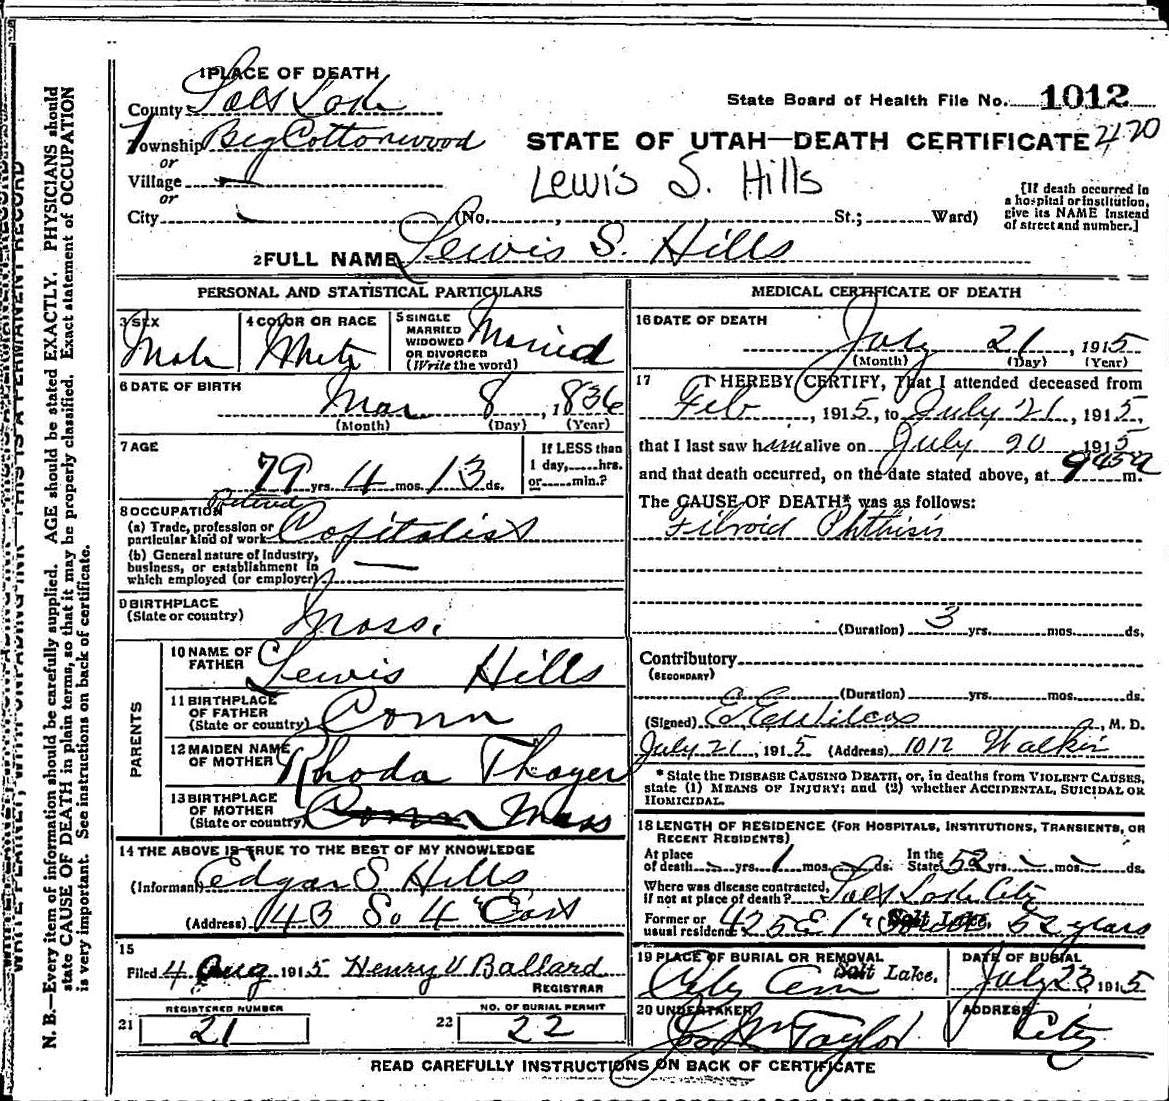 1 PLACE OF DEATH
County Salt Lake
State Board of Health File No. 1012
Township Big Cottonwood
STATE OF UTAH—DEATH CERTIFICATE 2470
or
Village
or
Lewis S. Hills
City (No. , St.; Ward)
[If death occurred in
a hospital or institution,
give its NAME instead
of street and number.]
2 FULL NAME Lewis S. Hills
PERSONAL AND STATISTICAL PARTICULARS
3 SEX
Male
4 COLOR OR RACE
White
5 SINGLE
MARRIED
WIDOWED
OR DIVORCED
(Write the word)
Married
6 DATE OF BIRTH
Mar 8, 1836
(Month) (Day) (Year)
7 AGE
79 yrs. 4 mos. 13 ds.
If LESS than
1 day,......hrs.
or......min.?
8 OCCUPATION
(a) Trade, profession or
particular kind of work
Retired
Capitalist
(b) General nature of industry,
business, or establishment in
which employed (or employer)
9 BIRTHPLACE
(State or country)
Mass.
PARENTS
10 NAME OF
FATHER
Lewis Hills
11 BIRTHPLACE
OF FATHER
(State or country)
Conn
12 MAIDEN NAME
OF MOTHER
Rhoda Thayer
13 BIRTHPLACE
OF MOTHER
(State or country)
Conn Mass
14 THE ABOVE IS TRUE TO THE BEST OF MY KNOWLEDGE
(Informant) Edgar S Hills
(Address) 143 So 4" East
15
Filed 4 Aug 1915 Henry V Ballard
REGISTRAR
REGISTERED NUMBER
21 21
NO. OF BURIAL PERMIT
22 22
MEDICAL CERTIFICATE OF DEATH
16 DATE OF DEATH
July 21, 1915
(Month) (Day) (Year)
17 I HEREBY CERTIFY, That I attended deceased from
Feb, 1915, to July 21, 1915,
that I last saw him alive on July 20 1915
and that death occurred, on the date stated above, at 945a m.
The CAUSE OF DEATH* was as follows:
Fibroid Phthisis
(Duration) 3 yrs. mos. ds.
Contributory
(SECONDARY)
(Duration) yrs. mos. ds.
(Signed) E E Wilcox, M. D.
July 21, 1915 (Address) 1012 Walker
* State the DISEASE CAUSING DEATH, or, in deaths from VIOLENT CAUSES,
state (1) MEANS OF INJURY; and (2) whether ACCIDENTAL, SUICIDAL OR
HOMICIDAL.
18 LENGTH OF RESIDENCE (FOR HOSPITALS, INSTITUTIONS, TRANSIENTS, OR
RECENT RESIDENTS)
At place
of death yrs. 1 mos. ds.
In the
State 52 yrs. mos. ds.
Where was disease contracted,
if not at place of death? Salt Lake City
Former or
usual residence 425 E 1" So Salt Lake 52 years
19 PLACE OF BURIAL OR REMOVAL
City Cem Salt Lake.
DATE OF BURIAL
July 23 1915
20 UNDERTAKER
Jos Wm Taylor
ADDRESS
City
READ CAREFULLY INSTRUCTIONS ON BACK OF CERTIFICATE
WRITE PLAINLY, WITH UNFADING INK—THIS IS A PERMANENT RECORD
N. B.—Every item of information should be carefully supplied. AGE should be stated EXACTLY. PHYSICIANS should
state CAUSE OF DEATH in plain terms, so that it may be properly classified. Exact statement of OCCUPATION
is very important. See instructions on back of certificate.